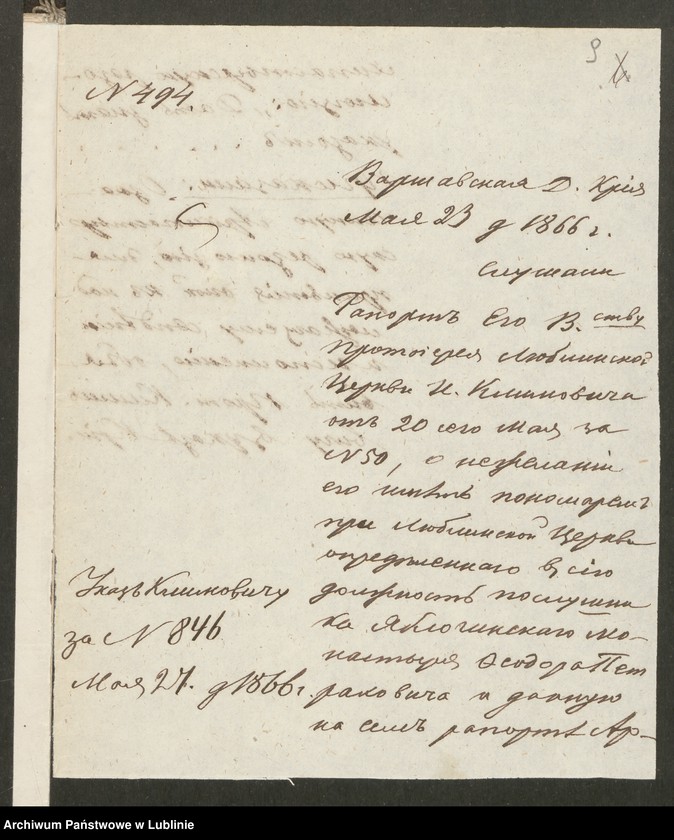 9
N 494
Варшавская Д. Крія
Мая 23 д 1866 г.
Слушали
Рапортъ Его В. ству
Протоіерея Люблинской
Церкви И. Климовича
отъ 20 сего Мая за
N 50, о нежеланіи
его имѣть пономаремъ
при Люблинской Церкви
опредѣленнаго въ сію
должность послушни
ка Яблочинскаго Мо-
настыря Ѳеодора Пет
раковича и данную
на семъ рапортѣ Ар-
Указъ Климовичу
за N 846
Мая 27. д 1866 г.
Archiwum Państwowe w Lublinie